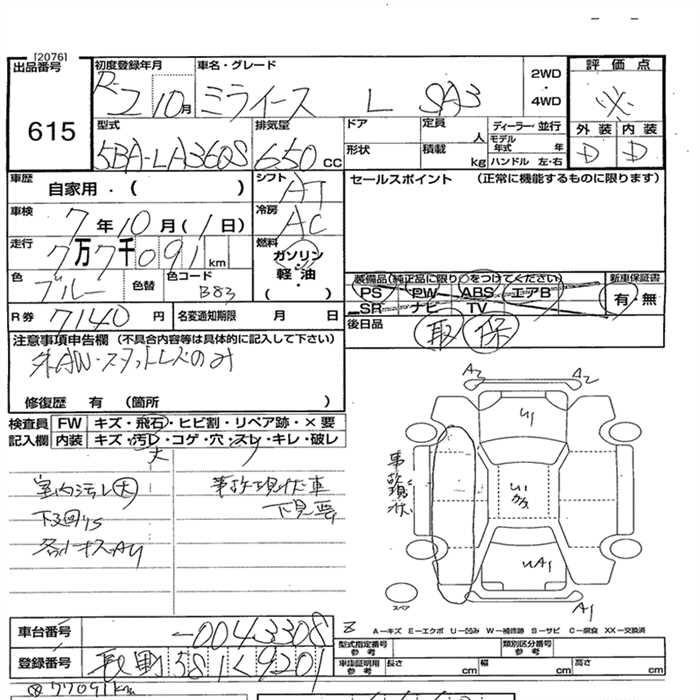 [2076]
出品番号
615
初度登録年月
R-2 10月
車名・グレード
ミライース L SA3
2WD
・
4WD
評価点
外装 内装
D D
型式
5BA-LA360S
排気量
650 cc
ドア
形状
定員 人
積載 kg
ディーラー・並行
モデル年式 年
ハンドル 左・右
車歴
自家用・( )
シフト
AT
セールスポイント (正常に機能するものに限ります)
車検
7年10月(1日)
冷房
AC
走行
7万7千091km
燃料
ガソリン
軽・油
( )
色
ブルー
色替
色コード
B83
装備品(純正品に限り○をつけてください)
PS PW ABS エアB
SR ナビ TV
新車保証書
有・無
R券 7140円
名変通知期限 月 日
後日品
取 保
注意事項申告欄 (不具合内容等は具体的に記入して下さい)
外AW・スタットレスのみ
修復歴 有 (箇所 )
検査員記入欄
FW キズ・飛石・ヒビ割・リペア跡・×要
内装 キズ・汚レ・コゲ・穴・スレ・キレ・破レ
大
室内汚レ大
下廻りS
各所キズAU
事故現状車
下見要
事故現状
A3 A2
U1
UA1
A1
スペア
A−キズ E−エクボ U−凹み W−補修跡 S−サビ C−腐食 XX−交換済
車台番号
-0043308
登録番号
長野 581 く 9201
型式指定番号
参考
類別区分番号
参考
車庫証明用
参考
長さ cm 幅 cm 高さ cm
77091km